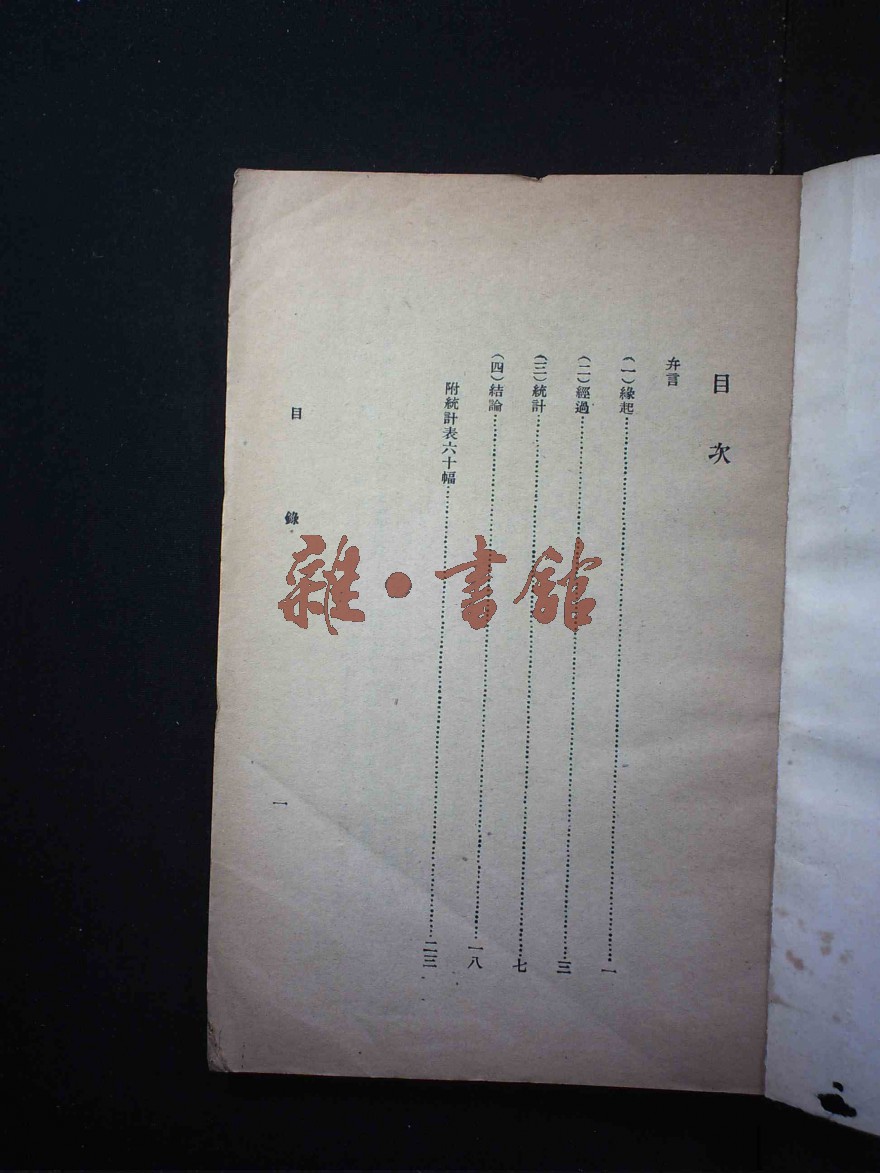 目次
弁言
(一)緣起……一
(二)經過……三
(三)統計……七
(四)結論……一八
附統計表六十幅……二三
目錄
一
雜·書館